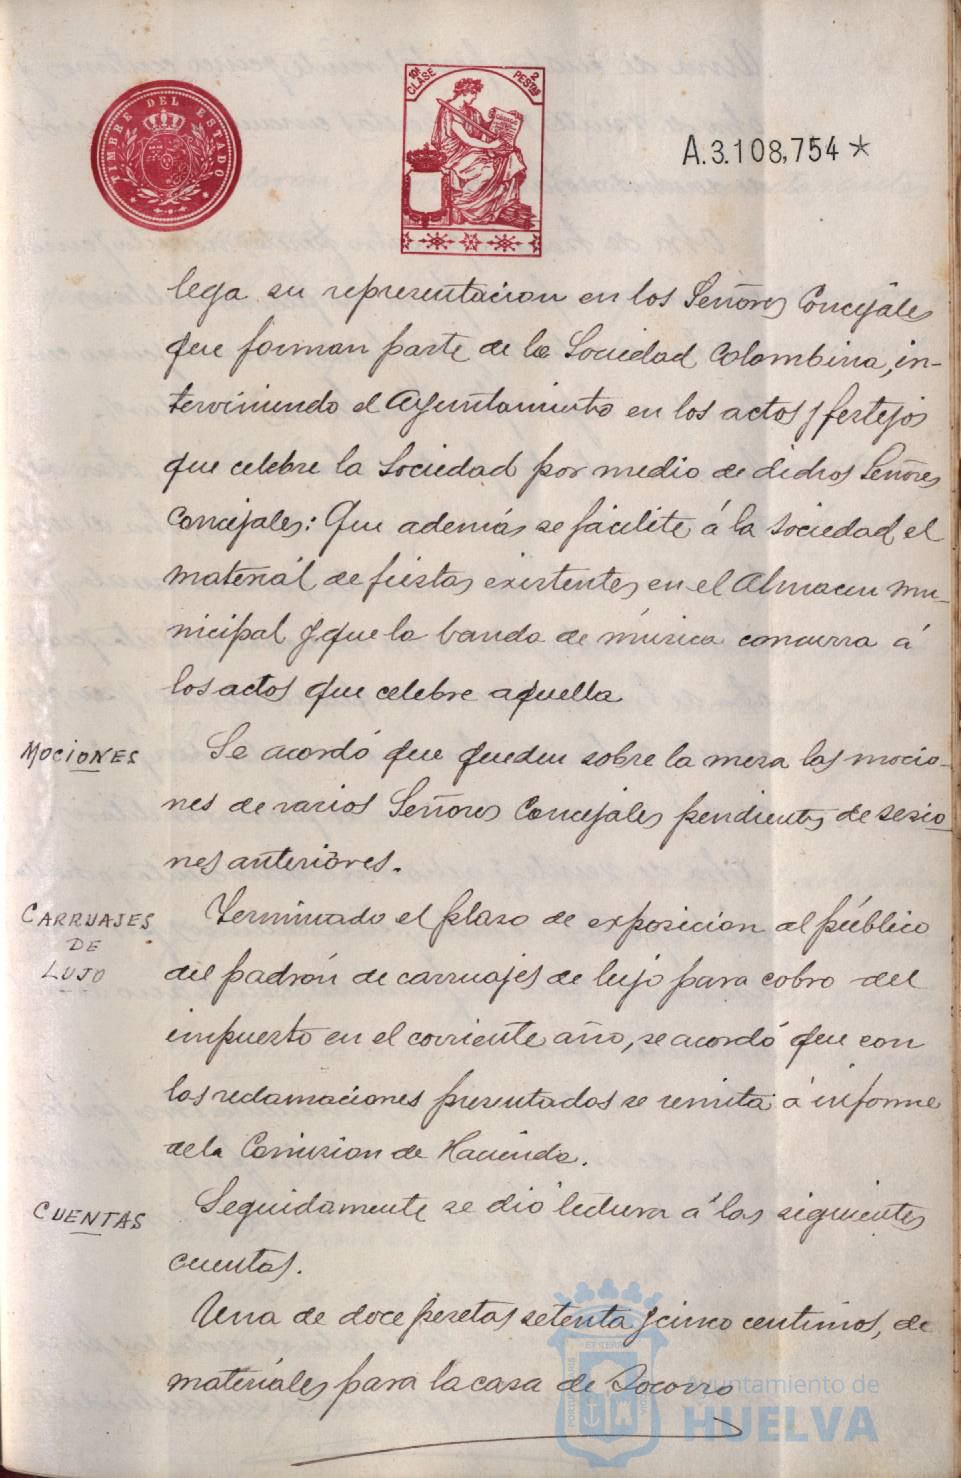 TIMBRE DEL ESTADO
10ª CLASE
2 PESTAS
A.3.108,754 *
lega su representacion en los Señores Concejales
que forman parte de la Sociedad Colombina, in-
terviniendo el Ayuntamiento en los actos y festejos
que celebre la Sociedad por medio de dichos Señores
Concejales: Que además se facilite á la Sociedad el
material de fiestas existentes en el Almacen mu-
nicipal y que la banda de música concurra á
los actos que celebre aquella
MOCIONES
Se acordó que queden sobre la mesa las mocio-
nes de varios Señores Concejales pendientes de sesio-
nes anteriores.
CARRUAJES
DE
LUJO
Terminado el plazo de exposicion al público
del padrón de carruajes de lujo para cobro del
impuesto en el corriente año, se acordó que con
las reclamaciones presentadas se remita á informe
de la Comision de Hacienda.
CUENTAS
Seguidamente se dió lectura á las siguientes
cuentas.
Una de doce pesetas setenta y cinco centimos, de
materiales para la casa de Socorro
Ayuntamiento de
HUELVA